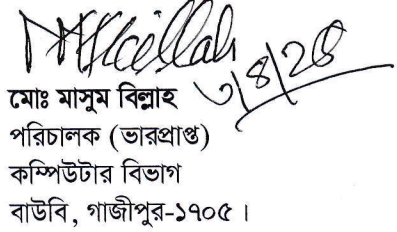 মোঃ মাসুম বিল্লাহ
পরিচালক (ভারপ্রাপ্ত)
কম্পিউটার বিভাগ
বাউবি, গাজীপুর-১৭০৫ ।